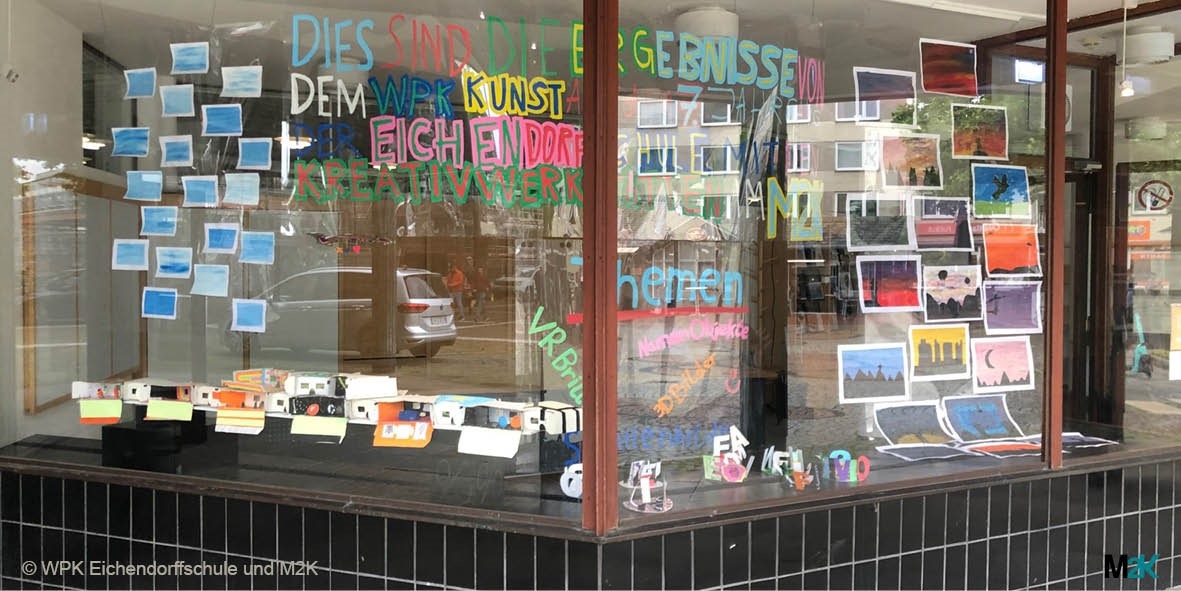 DIES SIND DIE ERGEBNISSE VON
DEM WPK KUNST 7. JAHRG
DER EICHENDORFF SCHULE MIT
KREATIVWERK IM M2K
Themen
Namen Objekte
VR Brill
3D Bilder
© WPK Eichendorffschule und M2K
M2K